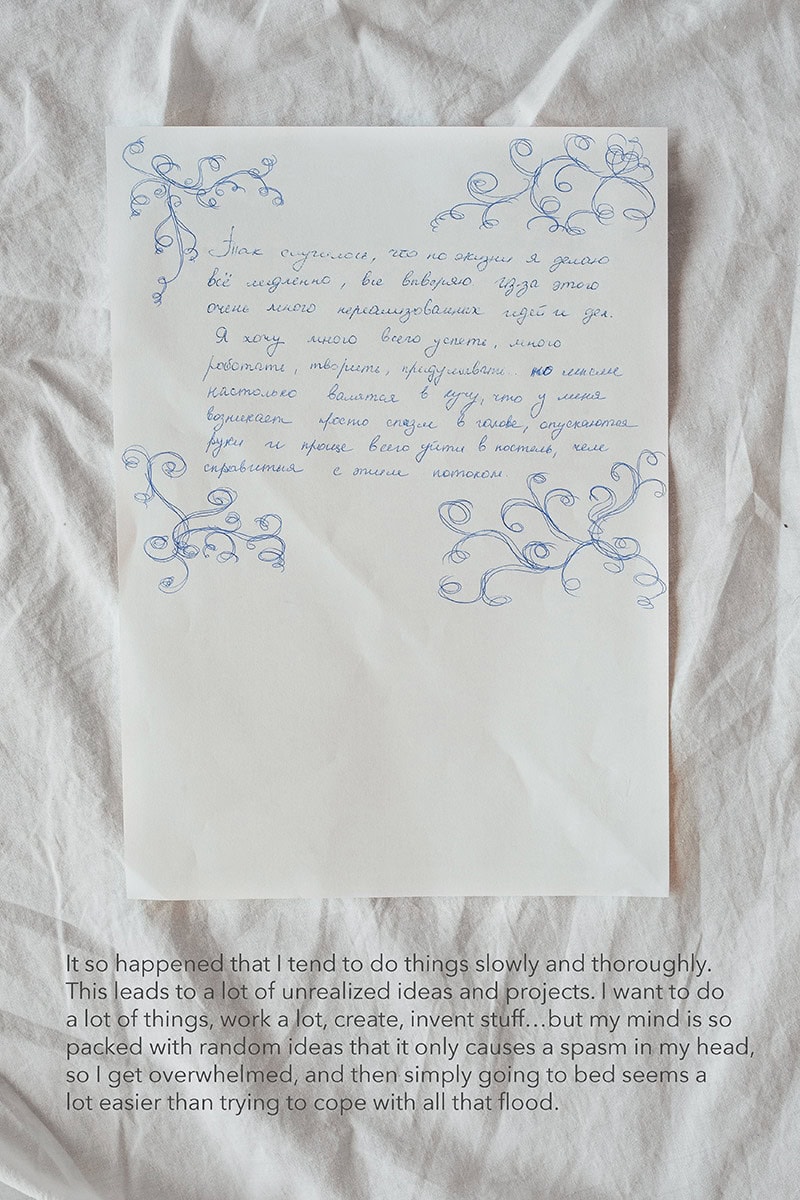 Так случилось, что по жизни я делаю
всё медленно, все выверяю из-за этого
очень много нереализованных идей и дел.
Я хочу много всего успеть, много
работать, творить, придумывать.. но мысли
настолько валятся в кучу, что у меня
возникает просто спазм в голове, опускаются
руки и проще всего уйти в постель, чем
справится с этим потоком.
It so happened that I tend to do things slowly and thoroughly.
This leads to a lot of unrealized ideas and projects. I want to do
a lot of things, work a lot, create, invent stuff...but my mind is so
packed with random ideas that it only causes a spasm in my head,
so I get overwhelmed, and then simply going to bed seems a
lot easier than trying to cope with all that flood.